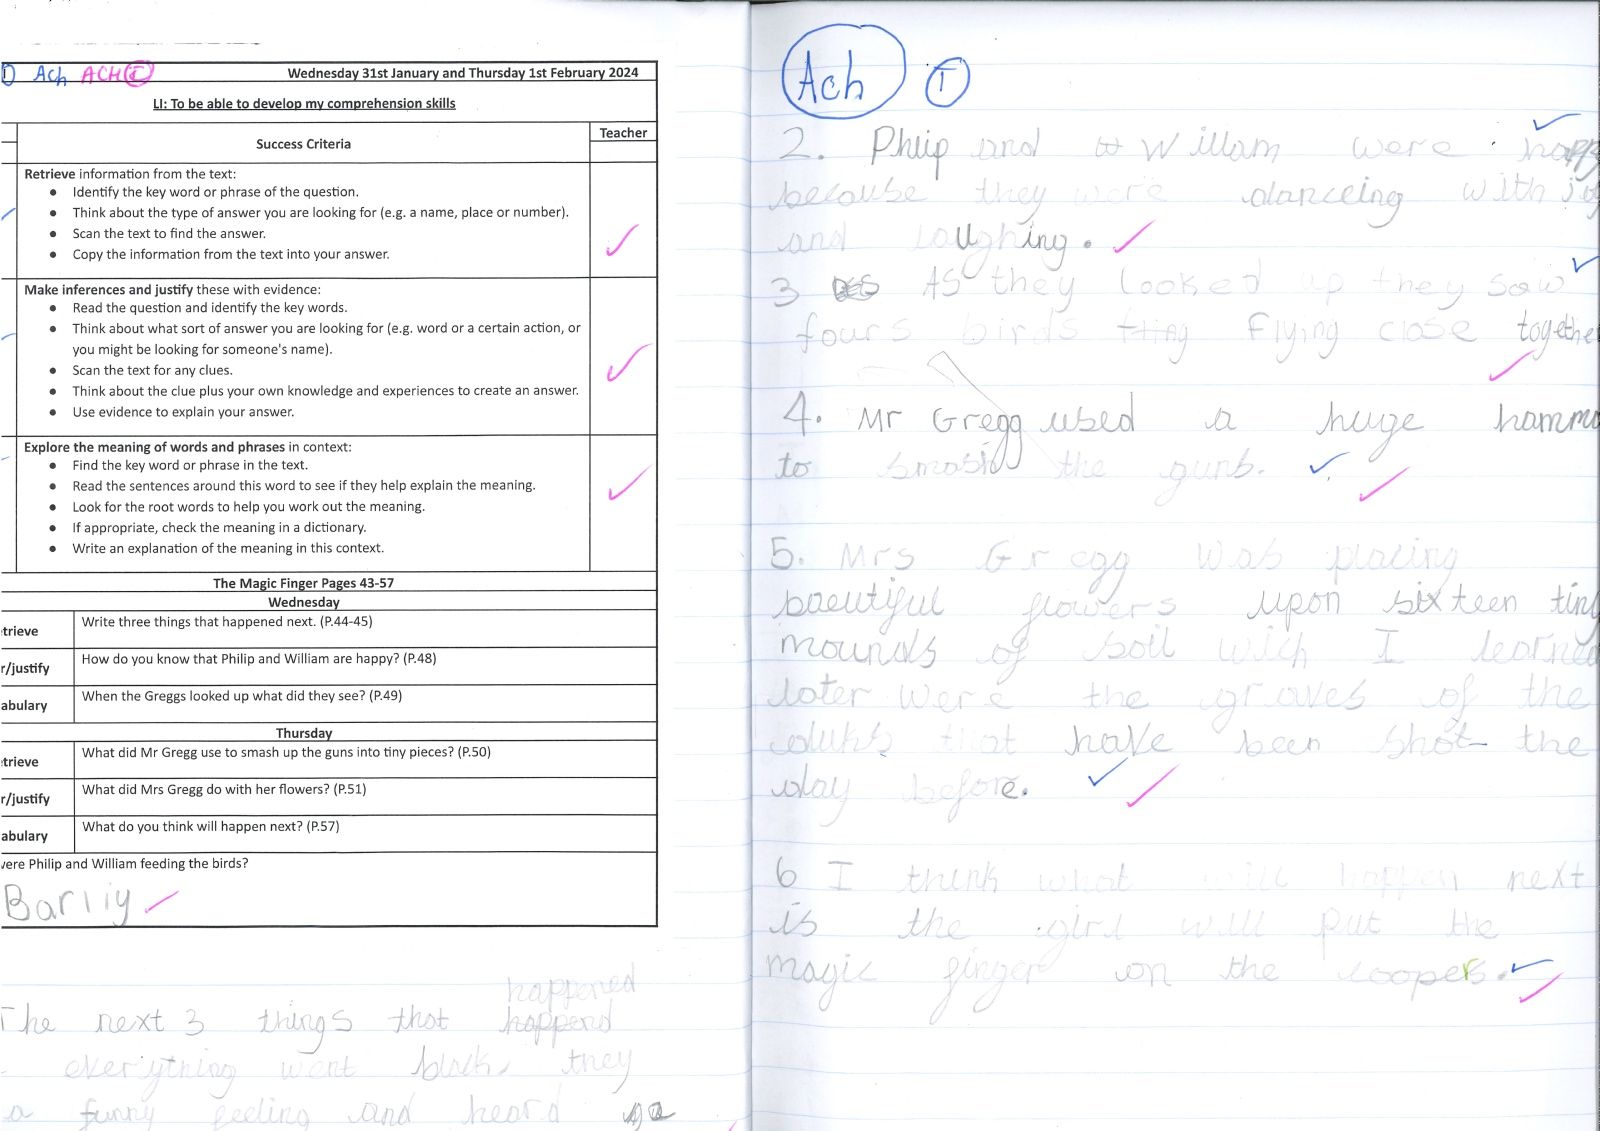 Ach ACH I
Wednesday 31st January and Thursday 1st February 2024
LI: To be able to develop my comprehension skills
Success Criteria
Teacher
Retrieve information from the text:
• Identify the key word or phrase of the question.
• Think about the type of answer you are looking for (e.g. a name, place or number).
• Scan the text to find the answer.
• Copy the information from the text into your answer.
Make inferences and justify these with evidence:
• Read the question and identify the key words.
• Think about what sort of answer you are looking for (e.g. word or a certain action, or
you might be looking for someone's name).
• Scan the text for any clues.
• Think about the clue plus your own knowledge and experiences to create an answer.
• Use evidence to explain your answer.
Explore the meaning of words and phrases in context:
• Find the key word or phrase in the text.
• Read the sentences around this word to see if they help explain the meaning.
• Look for the root words to help you work out the meaning.
• If appropriate, check the meaning in a dictionary.
• Write an explanation of the meaning in this context.
The Magic Finger Pages 43-57
Wednesday
trieve Write three things that happened next. (P.44-45)
r/justify How do you know that Philip and William are happy? (P.48)
abulary When the Greggs looked up what did they see? (P.49)
Thursday
trieve What did Mr Gregg use to smash up the guns into tiny pieces? (P.50)
r/justify What did Mrs Gregg do with her flowers? (P.51)
abulary What do you think will happen next? (P.57)
vere Philip and William feeding the birds?
Barliy
happened
The next 3 things that happend
everything went black, they
a funny feeling and heard
Ach I
2. Phlip and Willam were happy
because they were danceing with joy
and laughing.
3 As they looked up they saw
fours birds flying close together
4. Mr Gregg used a huge hamm
to smash the guns.
5. Mrs Gregg was placing
baeutiful flowers upon sixteen tiny
mounds of soil wich I learned
later were the graves of the
duks that have been shot the
day before.
6 I think what will happen next
is the girl will put the
magic finger on the coopers.